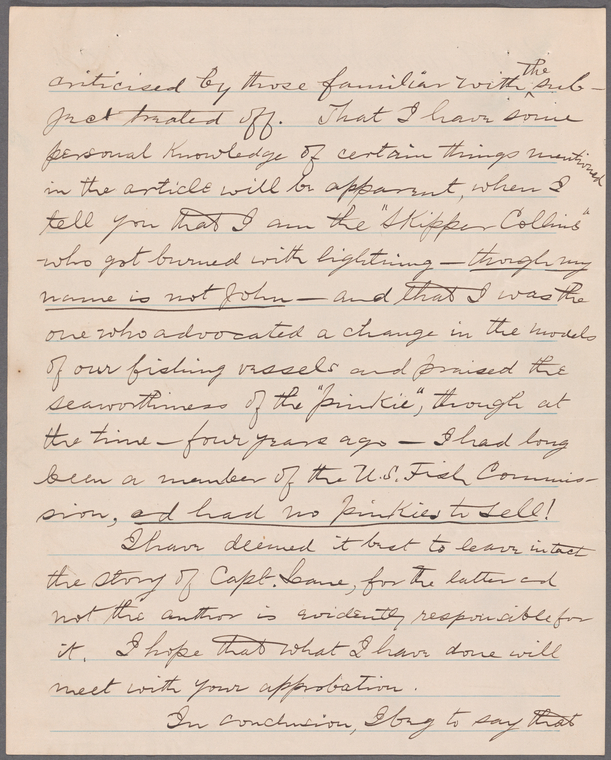 criticised by those familiar with the sub-
ject treated off. That I have some
personal knowledge of certain things mentioned
in the article will be apparent, when I
tell you that I am the "Skipper Collins"
who got burned with lightning — though my
name is not John — and that I was the
one who advocated a change in the models
of our fishing vessels and praised the
seaworthiness of the "pinkie", though at
the time — four years ago — I had long
been a member of the U.S. Fish Commis-
sion, ad had no pinkies to sell!
I have deemed it best to leave intact
the story of Capt. Lane, for the latter ad
not the author is evidently responsible for
it. I hope that what I have done will
meet with your approbation.
In conclusion, I beg to say that